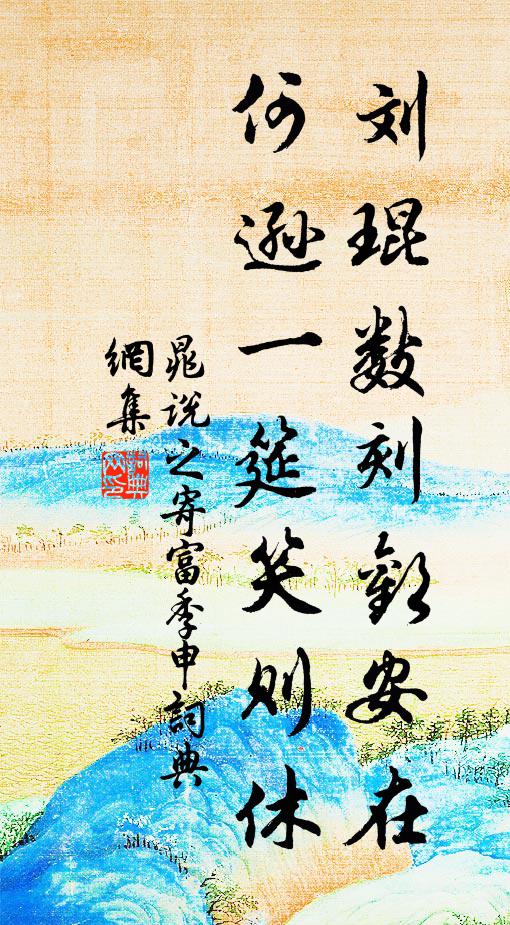 刘琨数刻歡安在
何遜一筵笑则休
晁说之寄富季申詞典
網集
詞典